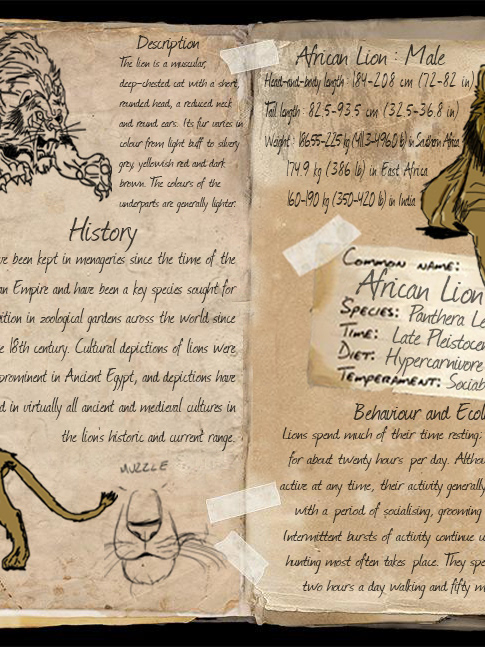 Description
The lion is a muscular,
deep-chested cat with a short,
rounded head, a reduced neck
and round ears. Its fur varies in
colour from light buff to silvery
grey, yellowish red and dark
brown. The colours of the
underparts are generally lighter.
History
ve been kept in menageries since the time of the
an Empire and have been a key species sought for
ition in zoological gardens across the world since
e 18th century. Cultural depictions of lions were
prominent in Ancient Egypt, and depictions have
d in virtually all ancient and medieval cultures in
the lion's historic and current range.
MUZZLE
African Lion : Male
Head-and-body length : 184-208 cm (72-82 in)
Tail length : 82.5-93.5 cm (32.5-36.8 in)
Weight : 186.55-225 kg (411.3-496.0 lb) in Southern Africa
174.9 kg (386 lb) in East Africa
160-190 kg (350-420 lb) in India
COMMON NAME:
African Lion
SPECIES: Panthera Le
TIME: Late Pleistocen
DIET: Hypercarnivore
TEMPERAMENT: Sociab
Behaviour and Ecol
Lions spend much of their time resting;
for about twenty hours per day. Althou
active at any time, their activity generally
with a period of socialising, grooming
Intermittent bursts of activity continue u
hunting most often takes place. They spe
two hours a day walking and fifty m